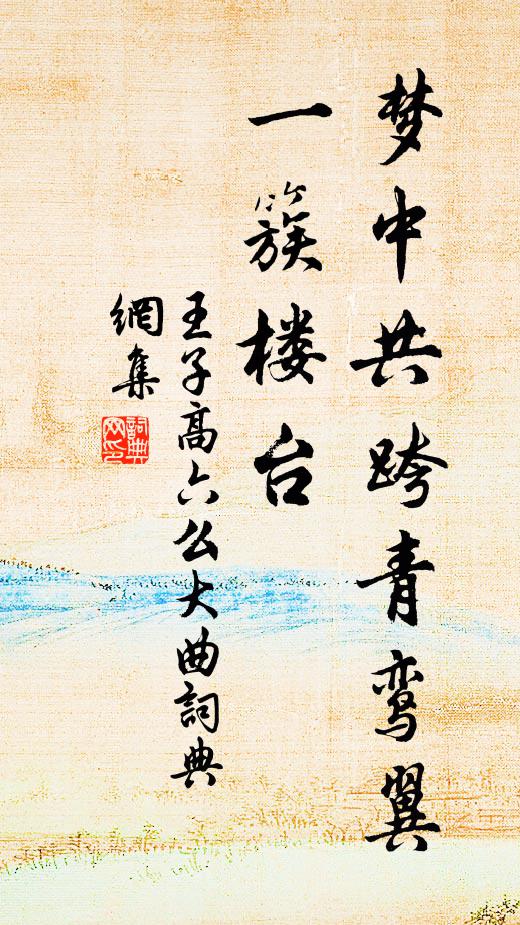 梦中共跨青鸾翼
一簇楼台
王子高六么大曲詞典
網集
詞典
网印